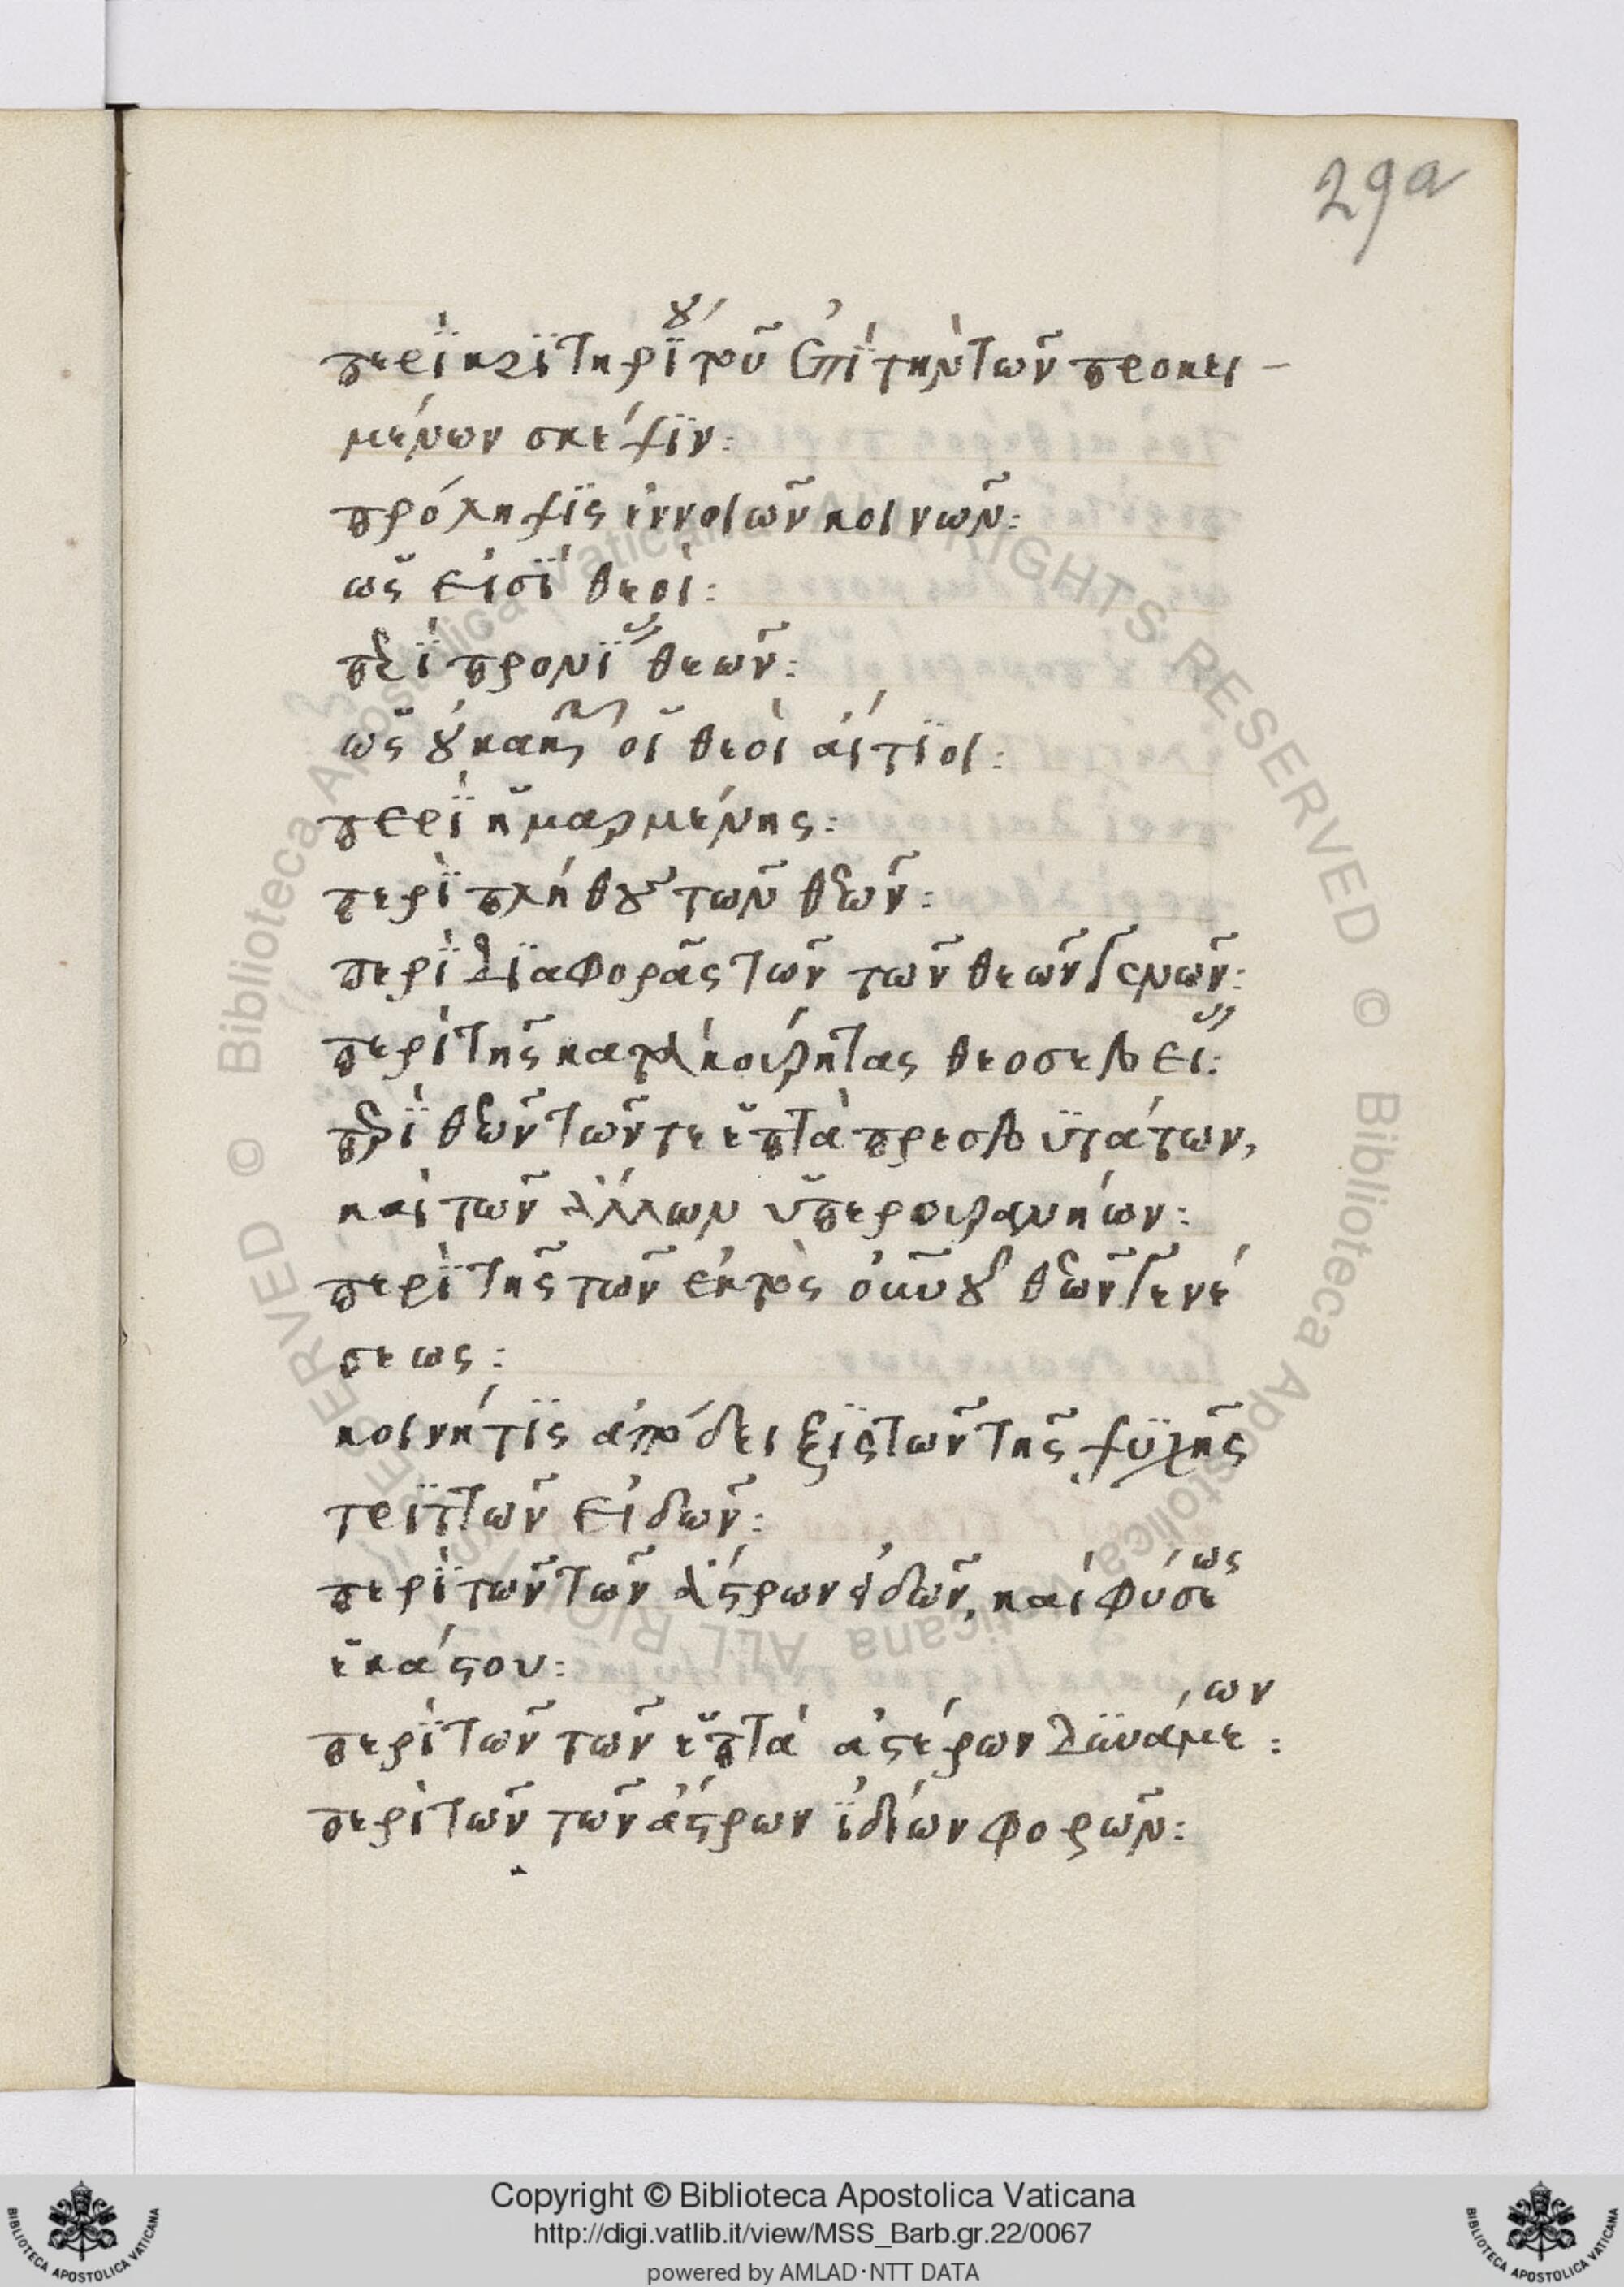 29a
περὶ κριτηρίου τοῦ ἐπὶ τὴν τῶν προκει-
μένων σκέψιν:
πρόληψις ἐννοιῶν κοινῶν:
ὡς εἰσὶ θεοί:
περὶ προνοίας θεῶν:
ὡς οὐ κακῶν οἱ θεοὶ αἴτιοι:
περὶ εἱμαρμένης:
περὶ πλήθους τῶν θεῶν:
περὶ διαφορᾶς τῶν τῶν θεῶν γενῶν:
περὶ τῆς κατὰ κουρῆτας θεοσεβείας:
περὶ θεῶν τῶν τε ἑπτὰ πρεσβυτάτων,
καὶ τῶν ἄλλων ὑπερουρανίων:
περὶ τῆς τῶν ἐντὸς οὐρανοῦ θεῶν γενέ
σεως:
κοινή τις ἀπόδειξις τῶν τῆς ψυχῆς
τριττῶν εἰδῶν:
περὶ τῶν τῶν ἄστρων εἰδῶν, καὶ φύσεως
ἑκάστου:
περὶ τῶν τῶν ἑπτὰ ἀστέρων δυνάμεων:
περὶ τῶν τῶν ἄστρων ἰδίων φορῶν:
Copyright © Biblioteca Apostolica Vaticana
http://digi.vatlib.it/view/MSS_Barb.gr.22/0067
powered by AMLAD·NTT DATA
© Biblioteca Apostolica Vaticana ALL RIGHTS RESERVED
© Biblioteca Apostolica Vaticana ALL RIGHTS RESERVED
BIBLIOTECA APOSTOLICA VATICANA
BIBLIOTECA APOSTOLICA VATICANA